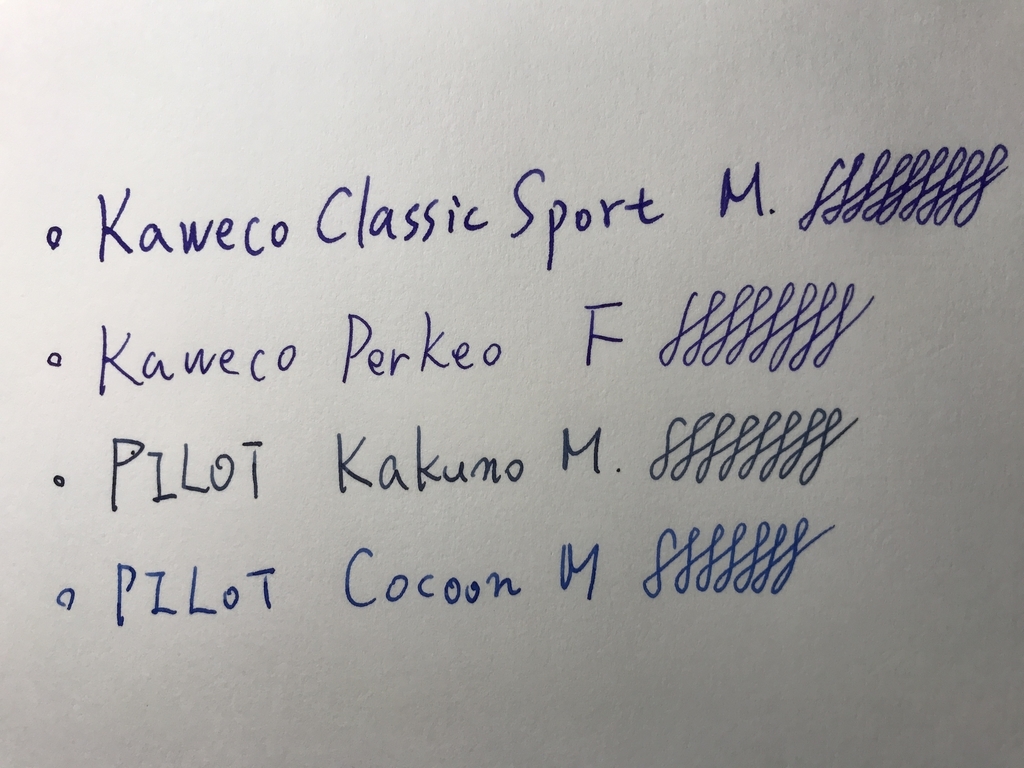 • Kaweco Classic Sport M.
• Kaweco Perkeo F
• PILOT Kakuno M.
• PILOT Cocoon M